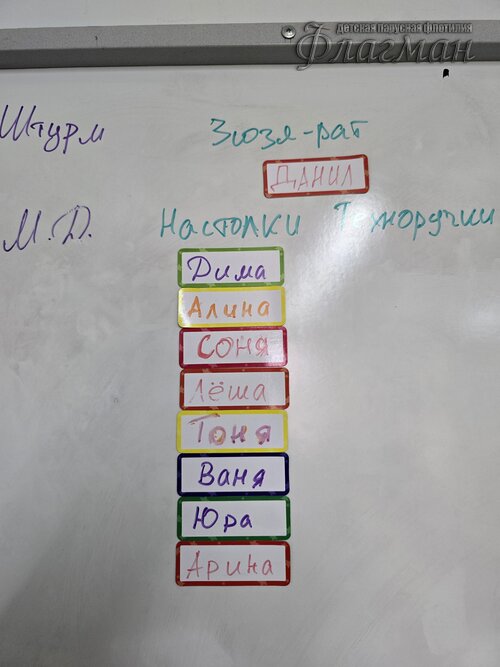 Детская парусная флотилия
Флагман
Штурм Зюзя-рат
ДАНИЛ
М.Д. Настолки Техноручки
Дима
Алина
Соня
Лёша
Тоня
Ваня
Юра
Арина